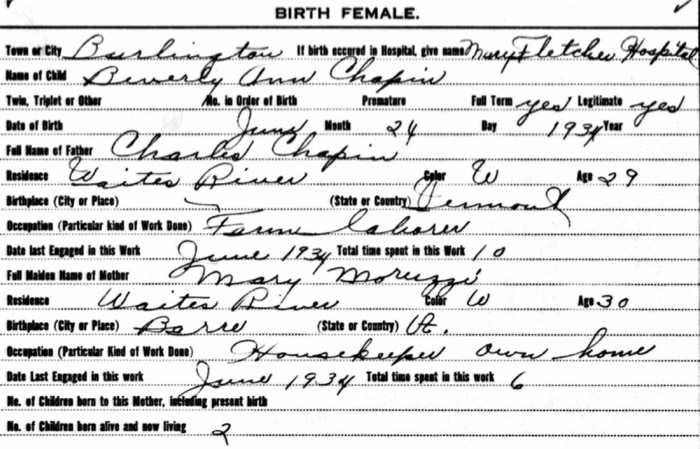 BIRTH FEMALE.
Town or City Burlington If birth occured in Hospital, give name Mary Fletcher Hospital
Name of Child Beverly Ann Chapin
Twin, Triplet or Other No. in Order of Birth Premature Full Term yes Legitimate yes
Date of Birth June Month 24 Day 1934 Year
Full Name of Father Charles Chapin
Residence Waites River Color W Age 29
Birthplace (City or Place) (State or Country) Vermont
Occupation (Particular kind of Work Done) Farm laborer
Date last Engaged in this Work June 1934 Total time spent in this Work 10
Full Maiden Name of Mother Mary Moruzzi
Residence Waites River Color W Age 30
Birthplace (City or Place) Barre (State or Country) Vt.
Occupation (Particular Kind of Work Done) Housekeeper own home
Date Last Engaged in this work June 1934 Total time spent in this work 6
No. of Children born to this Mother, including present birth
No. of Children born alive and now living 2